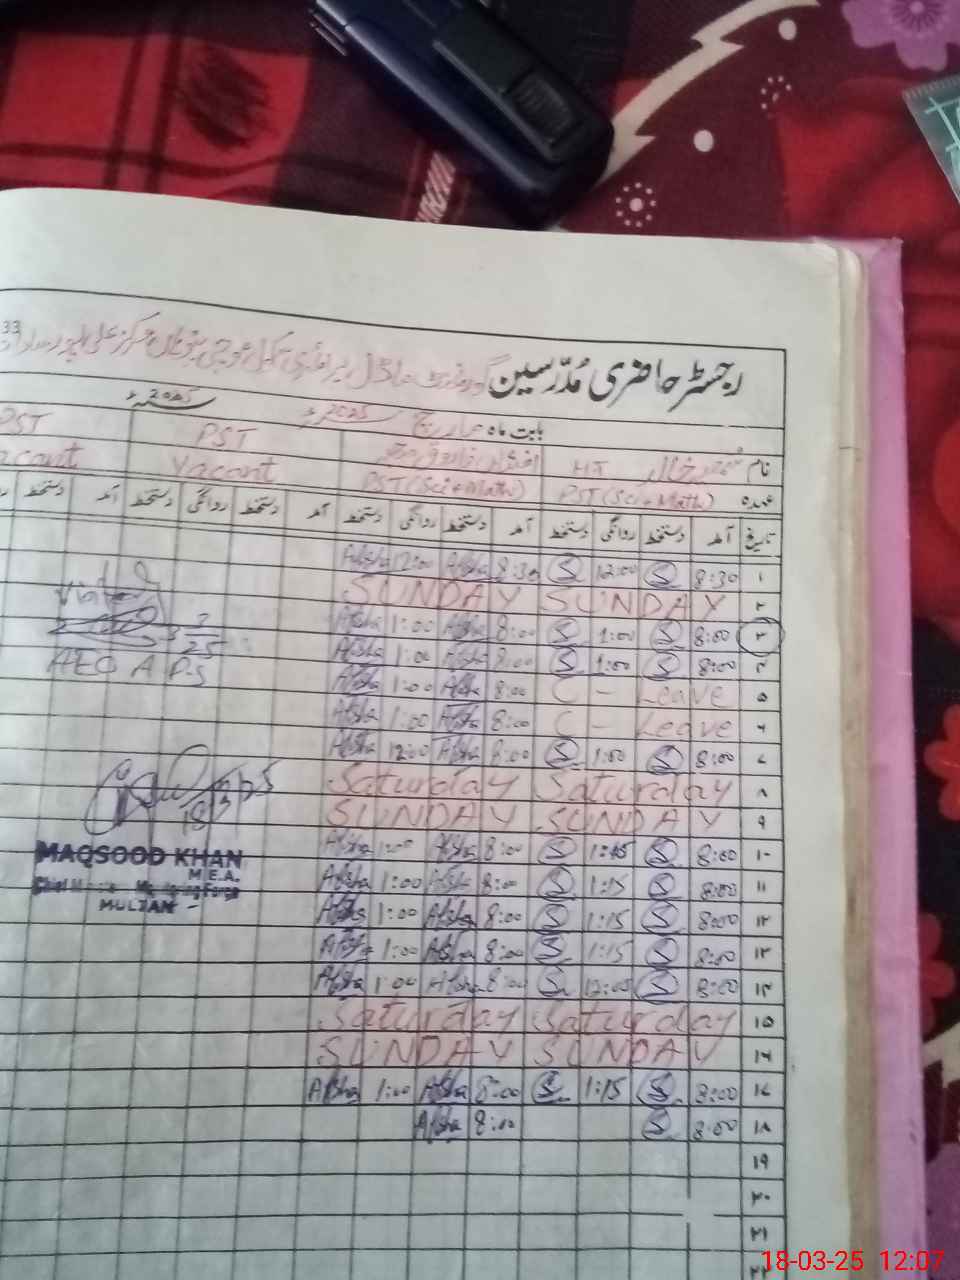 33
رجسٹر حاضری مُدرّسین گورنمنٹ ماڈل پرائمری سکول
بابت ماہ مارچ 2025ء 2025ء
نام HT PST PST
عہدہ PST (Sci+Math) PST (Sci+Math) Vacant Vacant
تاریخ آمد دستخط روانگی دستخط آمد دستخط روانگی دستخط آمد دستخط روانگی دستخط آمد دستخط
۱ 8:30 S 12:00 S 8:30 Afsha 12:00 Afsha
۲ SUNDAY SUNDAY
۳ 8:00 S 1:00 S 8:00 Afsha 1:00 Afsha
۴ 8:00 S 1:00 S 8:00 Afsha 1:00 Afsha
۵ C - Leave 8:00 Afsha 1:00 Afsha
۶ C - Leave 8:00 Afsha 1:00 Afsha
۷ 8:00 S 1:00 S 8:00 Afsha 12:00 Afsha
۸ Saturday Saturday
۹ SUNDAY SUNDAY
۱۰ 8:00 S 1:15 S 8:00 Afsha 1:00 Afsha
۱۱ 8:00 S 1:15 S 8:00 Afsha 1:00 Afsha
۱۲ 8:00 S 1:15 S 8:00 Afsha 1:00 Afsha
۱۳ 8:00 S 1:15 S 8:00 Afsha 1:00 Afsha
۱۴ 8:00 S 12:00 S 8:00 Afsha 1:00 Afsha
۱۵ Saturday Saturday
۱۶ SUNDAY SUNDAY
۱۷ 8:00 S 1:15 S 8:00 Afsha 1:00 Afsha
۱۸ 8:00 S 8:00 Afsha
۱۹
۲۰
۲۱
۲۲
Visited
3/25
AEO
18/3/25
MAQSOOD KHAN
M.E.A.
Monitoring Force
MULTAN
18-03-25 12:07